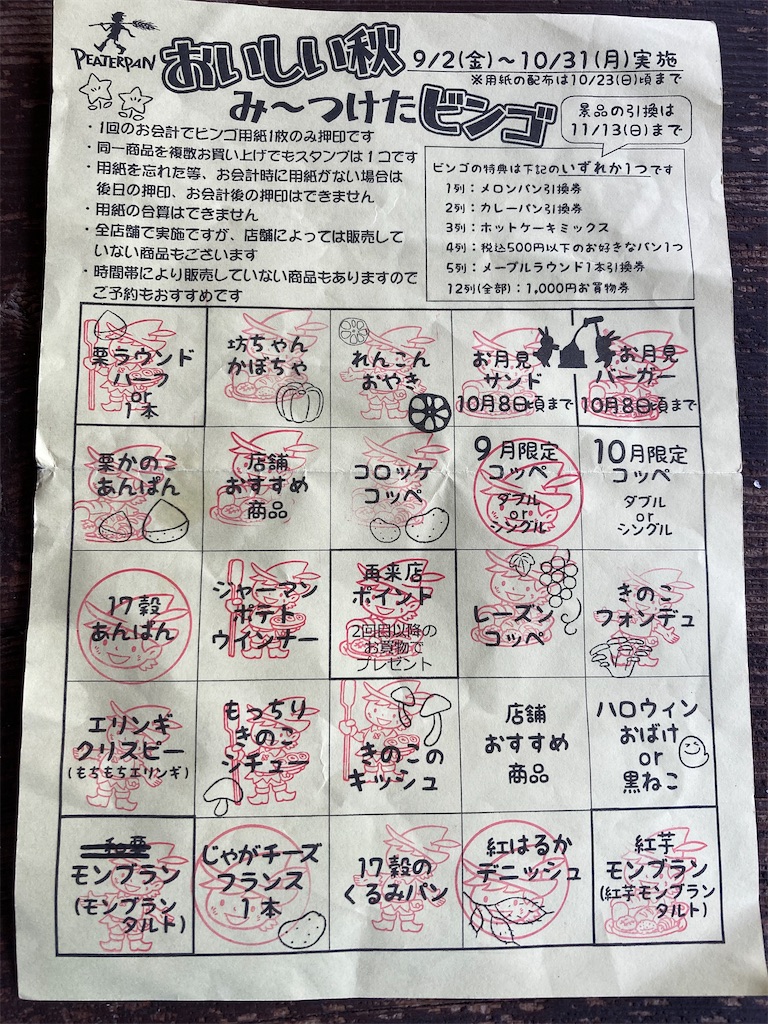 PEATERPAN
おいしい秋
み～つけたビンゴ
9/2(金)～10/31(月)実施
※用紙の配布は10/23(日)頃まで
景品の引換は
11/13(日)まで
・1回のお会計でビンゴ用紙1枚のみ押印です
・同一商品を複数お買い上げてもスタンプは1コです
・用紙を忘れた等、お会計時に用紙がない場合は
後日の押印、お会計後の押印はできません
・用紙の合算はできません
・全店舗で実施ですが、店舗によっては販売して
いない商品もございます
・時間帯により販売していない商品もありますので
ご予約もおすすめです
ビンゴの特典は下記のいずれか1つです
1列：メロンパン引換券
2列：カレーパン引換券
3列：ホットケーキミックス
4列：税込500円以下のお好きなパン1つ
5列：メープルラウンド1本引換券
12列(全部)：1,000円お買物券
栗ラウンド
ハーフ
or
1本
坊ちゃん
かぼちゃ
れんこん
おやき
お月見
サンド
10月8日頃まで
お月見
バーガー
10月8日頃まで
栗かのこ
あんぱん
店舗
おすすめ
商品
コロッケ
コッペ
9月限定
コッペ
ダブル
or
シングル
10月限定
コッペ
ダブル
or
シングル
17穀
あんぱん
ジャーマン
ポテト
ウインナー
再来店
ポイント
2回目以降の
お買物で
プレゼント
レーズン
コッペ
きのこ
フォンデュ
エリンギ
クリスピー
(もちもちエリンギ)
もっちり
きのこ
シチュー
きのこの
キッシュ
店舗
おすすめ
商品
ハロウィン
おばけ
or
黒ねこ
モンブラン
(モンブラン
タルト)
じゃがチーズ
フランス
1本
17穀の
くるみパン
紅はるか
デニッシュ
紅芋
モンブラン
(紅芋モンブラン
タルト)